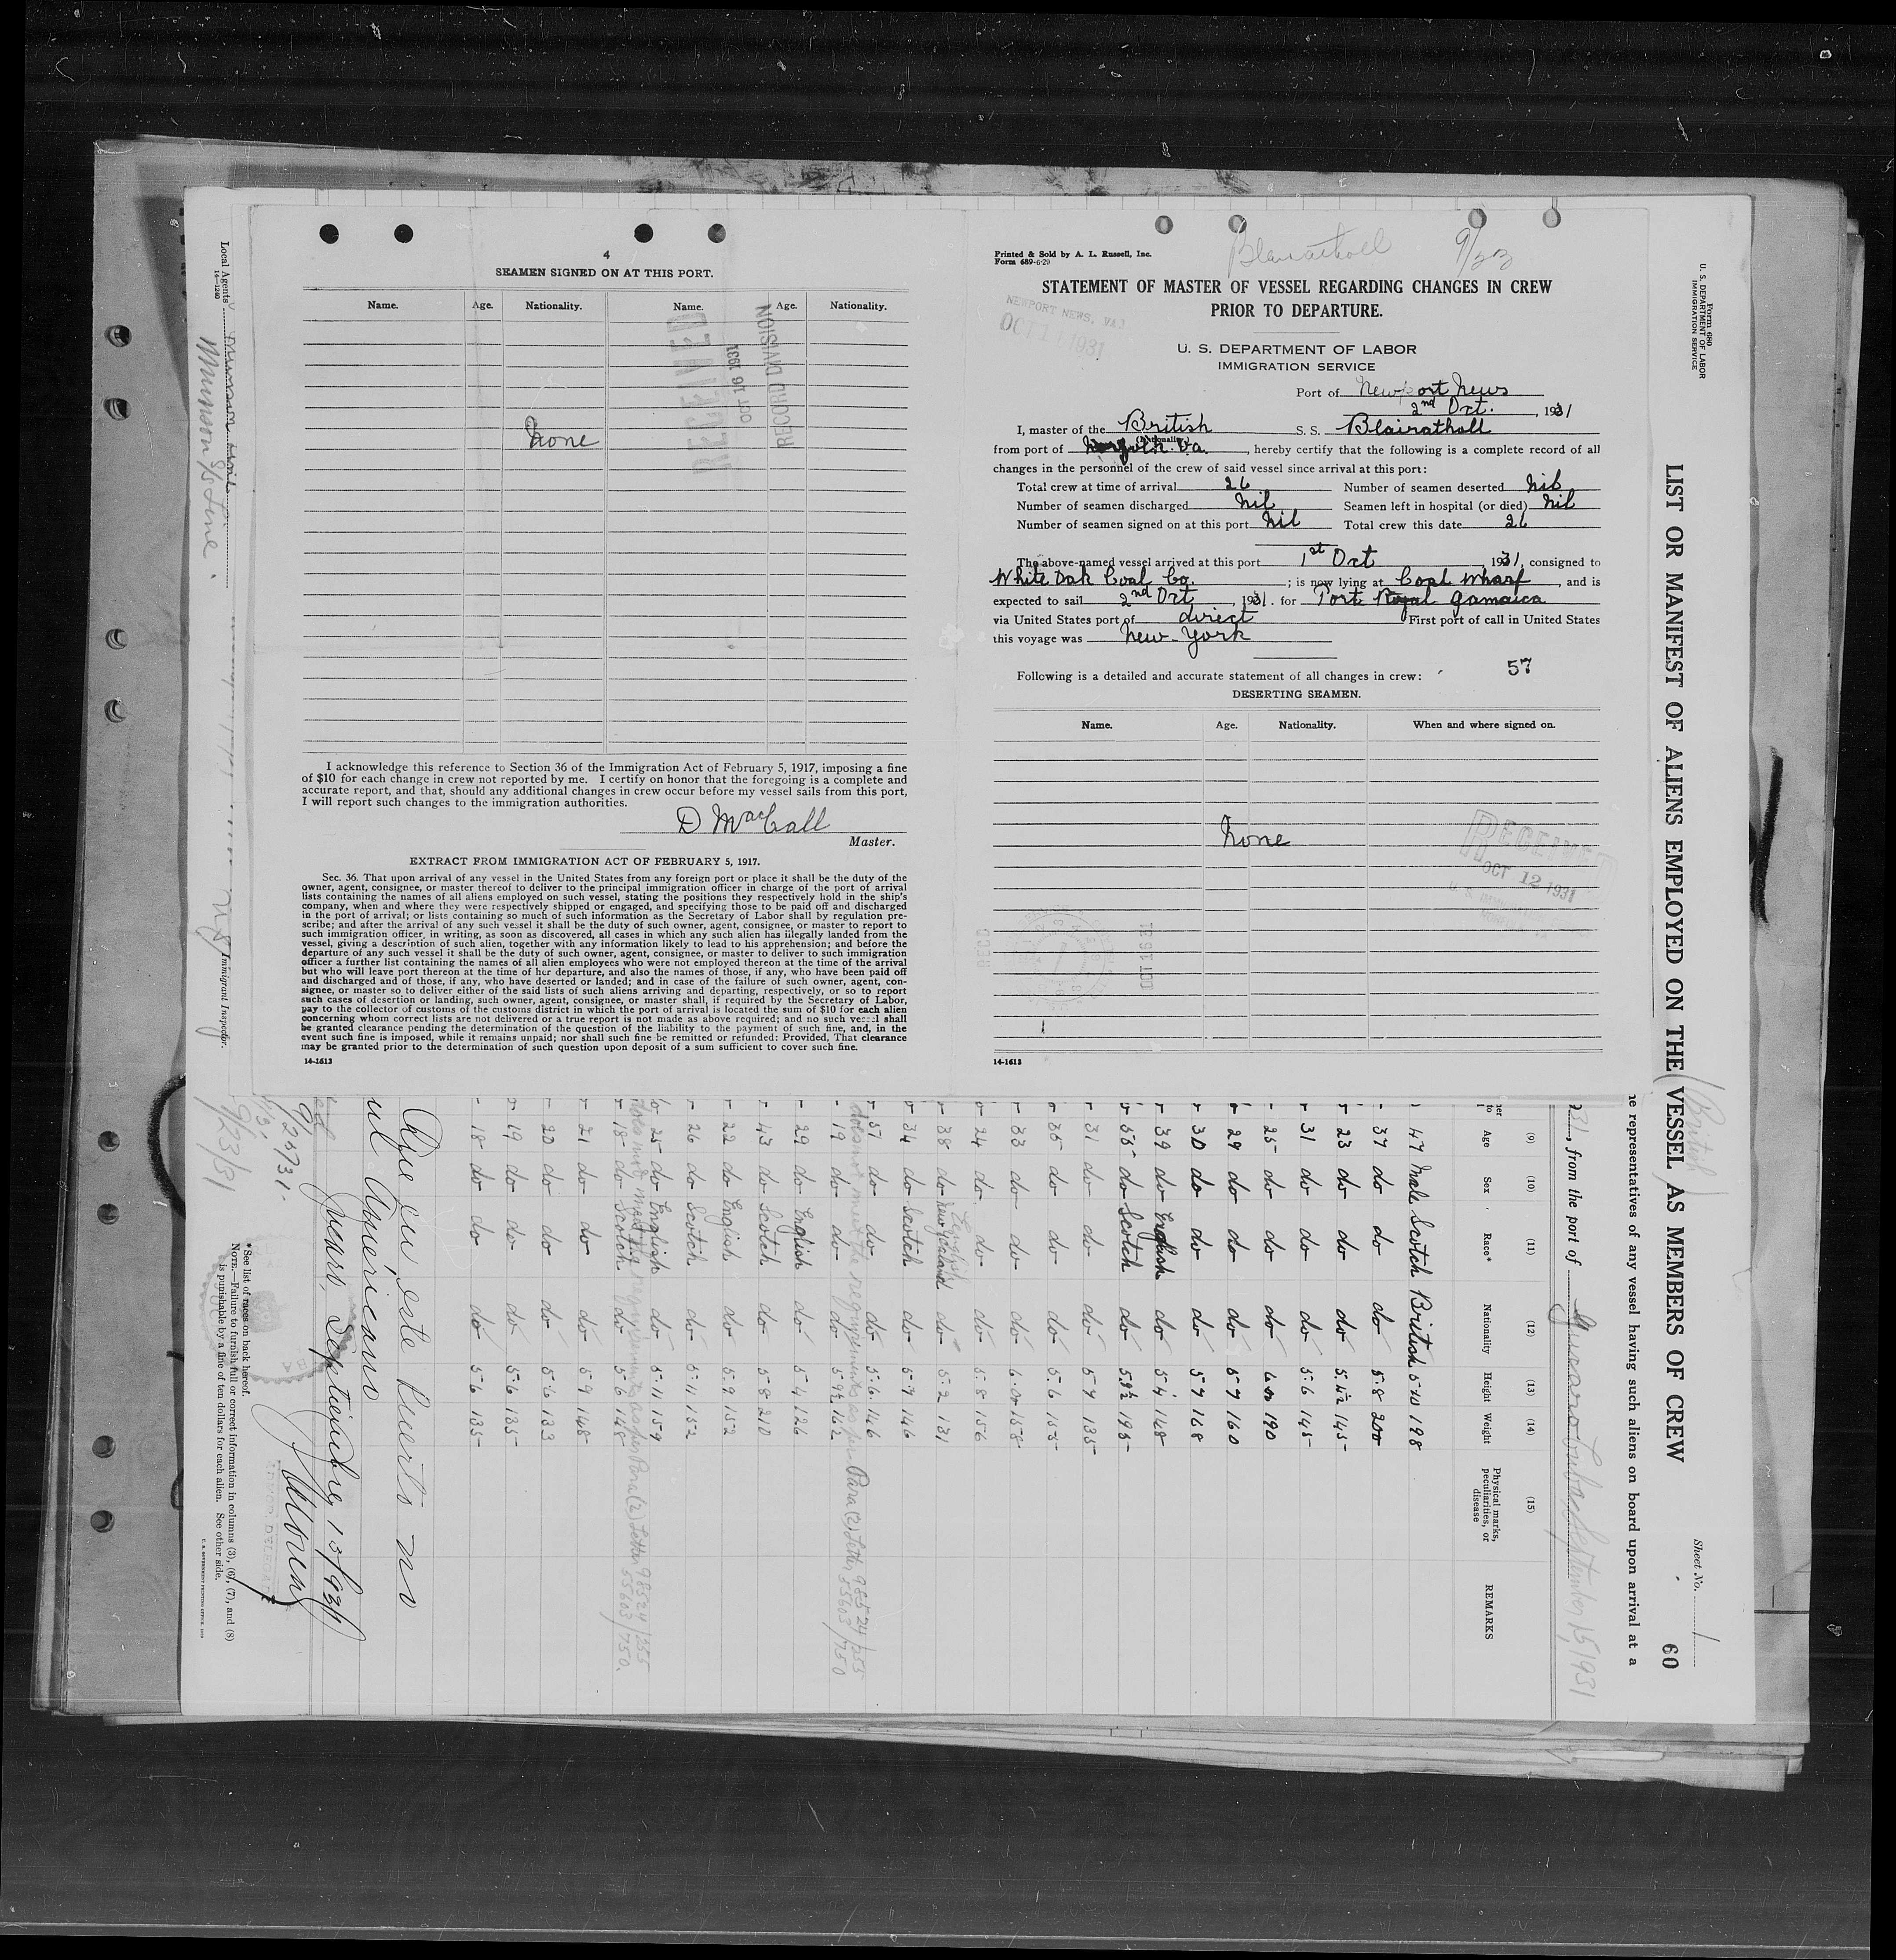 4
SEAMEN SIGNED ON AT THIS PORT.
Name. Age. Nationality. Name. Age. Nationality.
RECEIVED
OCT 16 1931
RECORD DIVISION
None
I acknowledge this reference to Section 36 of the Immigration Act of February 5, 1917, imposing a fine
of $10 for each change in crew not reported by me. I certify on honor that the foregoing is a complete and
accurate report, and that, should any additional changes in crew occur before my vessel sails from this port,
I will report such changes to the immigration authorities.
D MacCall
Master.
EXTRACT FROM IMMIGRATION ACT OF FEBRUARY 5, 1917.
Sec. 36. That upon arrival of any vessel in the United States from any foreign port or place it shall be the duty of the
owner, agent, consignee, or master thereof to deliver to the principal immigration officer in charge of the port of arrival
lists containing the names of all aliens employed on such vessel, stating the positions they respectively hold in the ship's
company, when and where they were respectively shipped or engaged, and specifying those to be paid off and discharged
in the port of arrival; or lists containing so much of such information as the Secretary of Labor shall by regulation pre-
scribe; and after the arrival of any such vessel it shall be the duty of such owner, agent, consignee, or master to report to
such immigration officer, in writing, as soon as discovered, all cases in which any such alien has illegally landed from the
vessel, giving a description of such alien, together with any information likely to lead to his apprehension; and before the
departure of any such vessel it shall be the duty of such owner, agent, consignee, or master to deliver to such immigration
officer a further list containing the names of all alien employees who were not employed thereon at the time of the arrival
but who will leave port thereon at the time of her departure, and also the names of those, if any, who have been paid off
and discharged and of those, if any, who have deserted or landed; and in case of the failure of such owner, agent, con-
signee, or master so to deliver either of the said lists of such aliens arriving and departing, respectively, or so to report
such cases of desertion or landing, such owner, agent, consignee, or master shall, if required by the Secretary of Labor,
pay to the collector of customs of the customs district in which the port of arrival is located the sum of $10 for each alien
concerning whom correct lists are not delivered or a true report is not made as above required; and no such vessel shall
be granted clearance pending the determination of the question of the liability to the payment of such fine, and, in the
event such fine is imposed, while it remains unpaid; nor shall such fine be remitted or refunded: Provided, That clearance
may be granted prior to the determination of such question upon deposit of a sum sufficient to cover such fine.
14-1613
Printed & Sold by A. L. Russell, Inc.
Form 689-6-29
Blairatholl 9/23
STATEMENT OF MASTER OF VESSEL REGARDING CHANGES IN CREW
PRIOR TO DEPARTURE.
NEWPORT NEWS, VA.
U. S. DEPARTMENT OF LABOR
IMMIGRATION SERVICE
Port of Newport News
2nd Oct. , 1931
I, master of the British S. S. Blairatholl
(Nationality)
from port of Norfolk. Va. , hereby certify that the following is a complete record of all
changes in the personnel of the crew of said vessel since arrival at this port:
Total crew at time of arrival 26 Number of seamen deserted Nil
Number of seamen discharged Nil Seamen left in hospital (or died) Nil
Number of seamen signed on at this port Nil Total crew this date 26
The above-named vessel arrived at this port 1st Oct 1931, consigned to
White Oak Coal Co. ; is now lying at Coal Wharf , and is
expected to sail 2nd Oct , 1931. for Port Royal Jamaica
via United States port of direct First port of call in United States
this voyage was New York
57
Following is a detailed and accurate statement of all changes in crew:
DESERTING SEAMEN.
Name. Age. Nationality. When and where signed on.
None
RECEIVED
OCT 12 1931
REC'D
OCT 16 31
14-1613
Form 680
U. S. DEPARTMENT OF LABOR
IMMIGRATION SERVICE
LIST OR MANIFEST OF ALIENS EMPLOYED ON THE VESSEL AS MEMBERS OF CREW
(British)
Sheet No. 1
60
representatives of any vessel having such aliens on board upon arrival at a
31, from the port of Guantanamo Cuba September 15, 1931
(9) (10) (11) (12) (13) (14) (15)
Age Sex Race* Nationality Height Weight Physical marks, peculiarities, or disease REMARKS
47 Male Scotch British 5-10 198
37 do do do 5-8 200
23 do do do 5.4½ 145
31 do do do 5-6 145
25 do do do 6-0 190
29 do do do 5-7 160
30 do do do 5-7 168
39 do English do 5-4 148
55 do Scotch do 5-9½ 195
31 do do do 5-7 135
35 do do do 5-6 155
33 do do do 6-0 158
24 do do do 5-8 156
English
38 do New Zealand do 5-2 131
34 do Scotch do 5-7 146
57 do do do 5-6 146
does not meet the requirements as per Para (2) Letter 98524/255
55603/750
19 do do do 5-9½ 162
29 do English do 5-4 126
43 do Scotch do 5-8 210
22 do English do 5-9 152
26 do Scotch do 5-11 152
25 do English do 5-11 159
does not meet the requirements as per Para (2) Letter 98524/255
55603/750.
18 do Scotch do 5-6 148
21 do do do 5-9 148
20 do do do 5-6 133
19 do do do 5-6 135
18 do do do 5-6 135
Que en este Puerto no
Americano
Septiembre 15/931
9/23/31
*See list of races on back hereof.
NOTE.—Failure to furnish full or correct information in columns (3), (6), (7), and (8)
is punishable by a fine of ten dollars for each alien. See other side.
U. S. GOVERNMENT PRINTING OFFICE
Local Agents Munson Line
14-1240
Munson S/S Line
Immigrant Inspector.
9/23/31